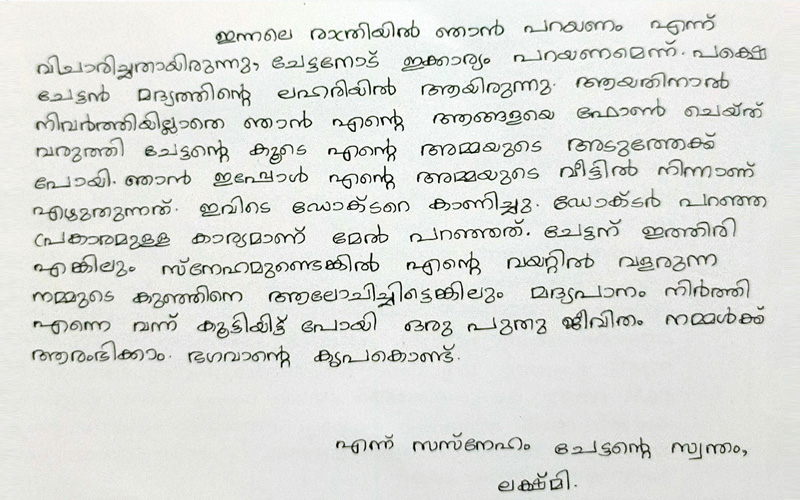 ഇന്നലെ രാത്രിയിൽ ഞാൻ പറയണം എന്ന്
വിചാരിച്ചതായിരുന്നു, ചേട്ടനോട് ഇക്കാര്യം പറയണമെന്ന്. പക്ഷെ
ചേട്ടൻ മദ്യത്തിന്റെ ലഹരിയിൽ ആയിരുന്നു. ആയതിനാൽ
നിവർത്തിയില്ലാതെ ഞാൻ എന്റെ ആങ്ങളയെ ഫോൺ ചെയ്ത്
വരുത്തി ചേട്ടന്റെ കൂടെ എന്റെ അമ്മയുടെ അടുത്തേക്ക്
പോയി. ഞാൻ ഇപ്പോൾ എന്റെ അമ്മയുടെ വീട്ടിൽ നിന്നാണ്
എഴുതുന്നത്. ഇവിടെ ഡോക്ടറെ കാണിച്ചു. ഡോക്ടർ പറഞ്ഞ
പ്രകാരമുള്ള കാര്യമാണ് മേൽ പറഞ്ഞത്. ചേട്ടന് ഇത്തിരി
എങ്കിലും സ്നേഹമുണ്ടെങ്കിൽ എന്റെ വയറ്റിൽ വളരുന്ന
നമ്മുടെ കുഞ്ഞിനെ ആലോചിച്ചിട്ടെങ്കിലും മദ്യപാനം നിർത്തി
എന്നെ വന്ന് കൂട്ടിയിട്ട് പോയി ഒരു പുതു ജീവിതം നമ്മൾക്ക്
ആരംഭിക്കാം. ഭഗവാന്റെ കൃപകൊണ്ട്.
എന്ന് സസ്നേഹം ചേട്ടന്റെ സ്വന്തം,
ലക്ഷ്മി.